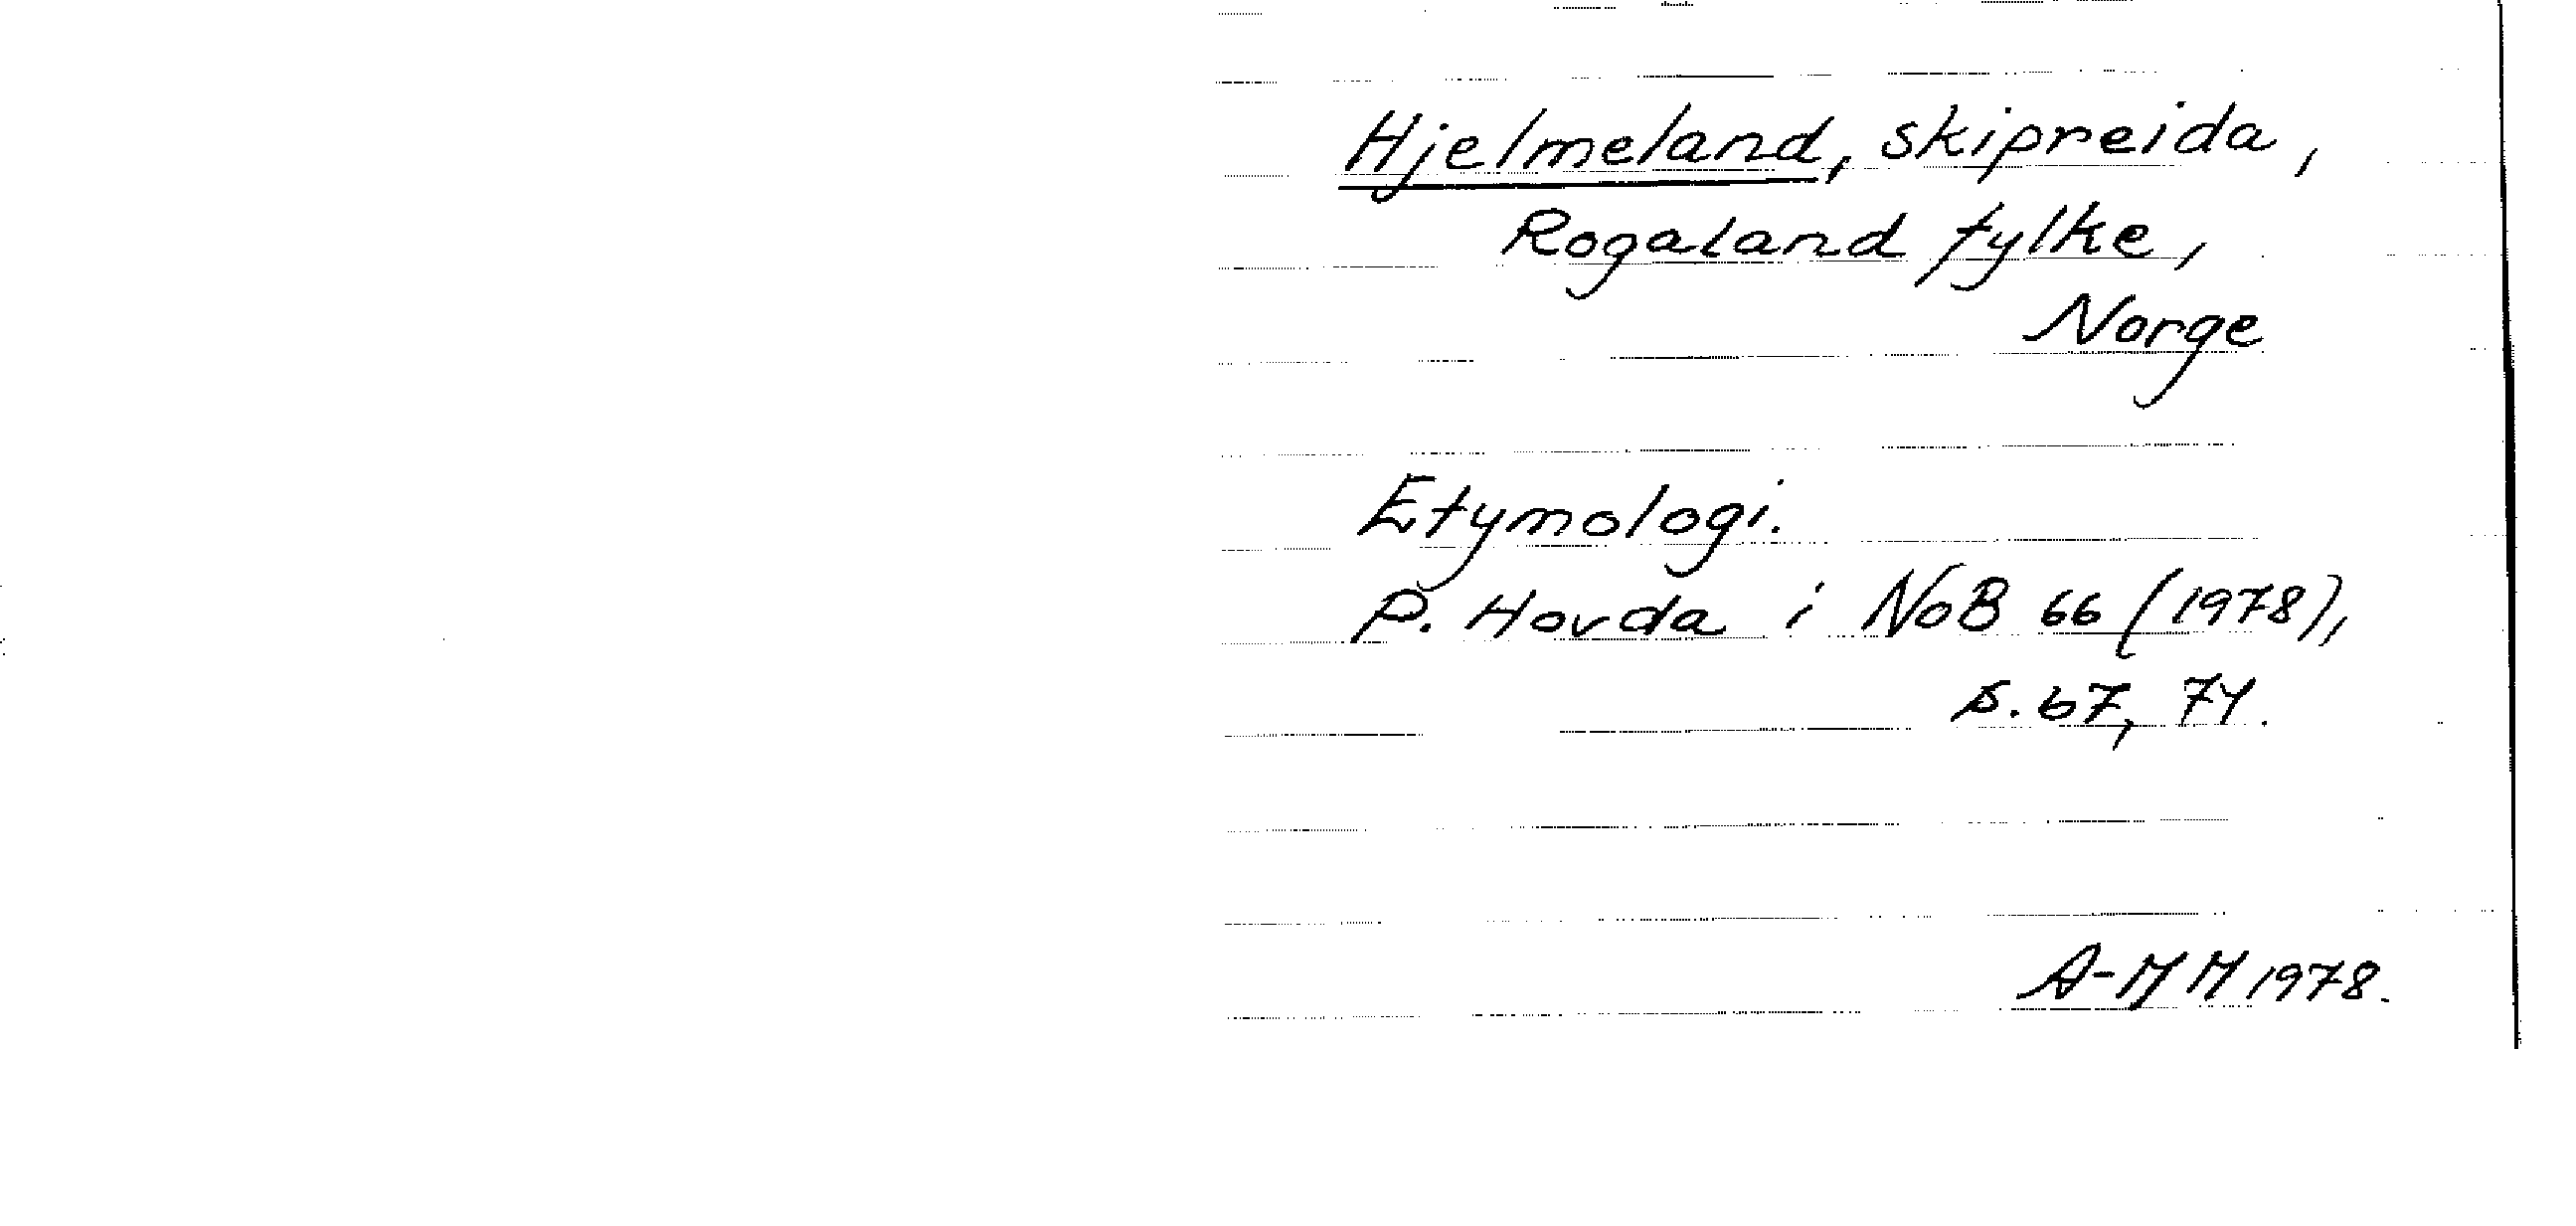 Hjelmeland, skipreida,
Rogaland fylke,
Norge
Etymologi.
P. Hovda i NoB 66 (1978),
s. 67, 74.
A-MM 1978.